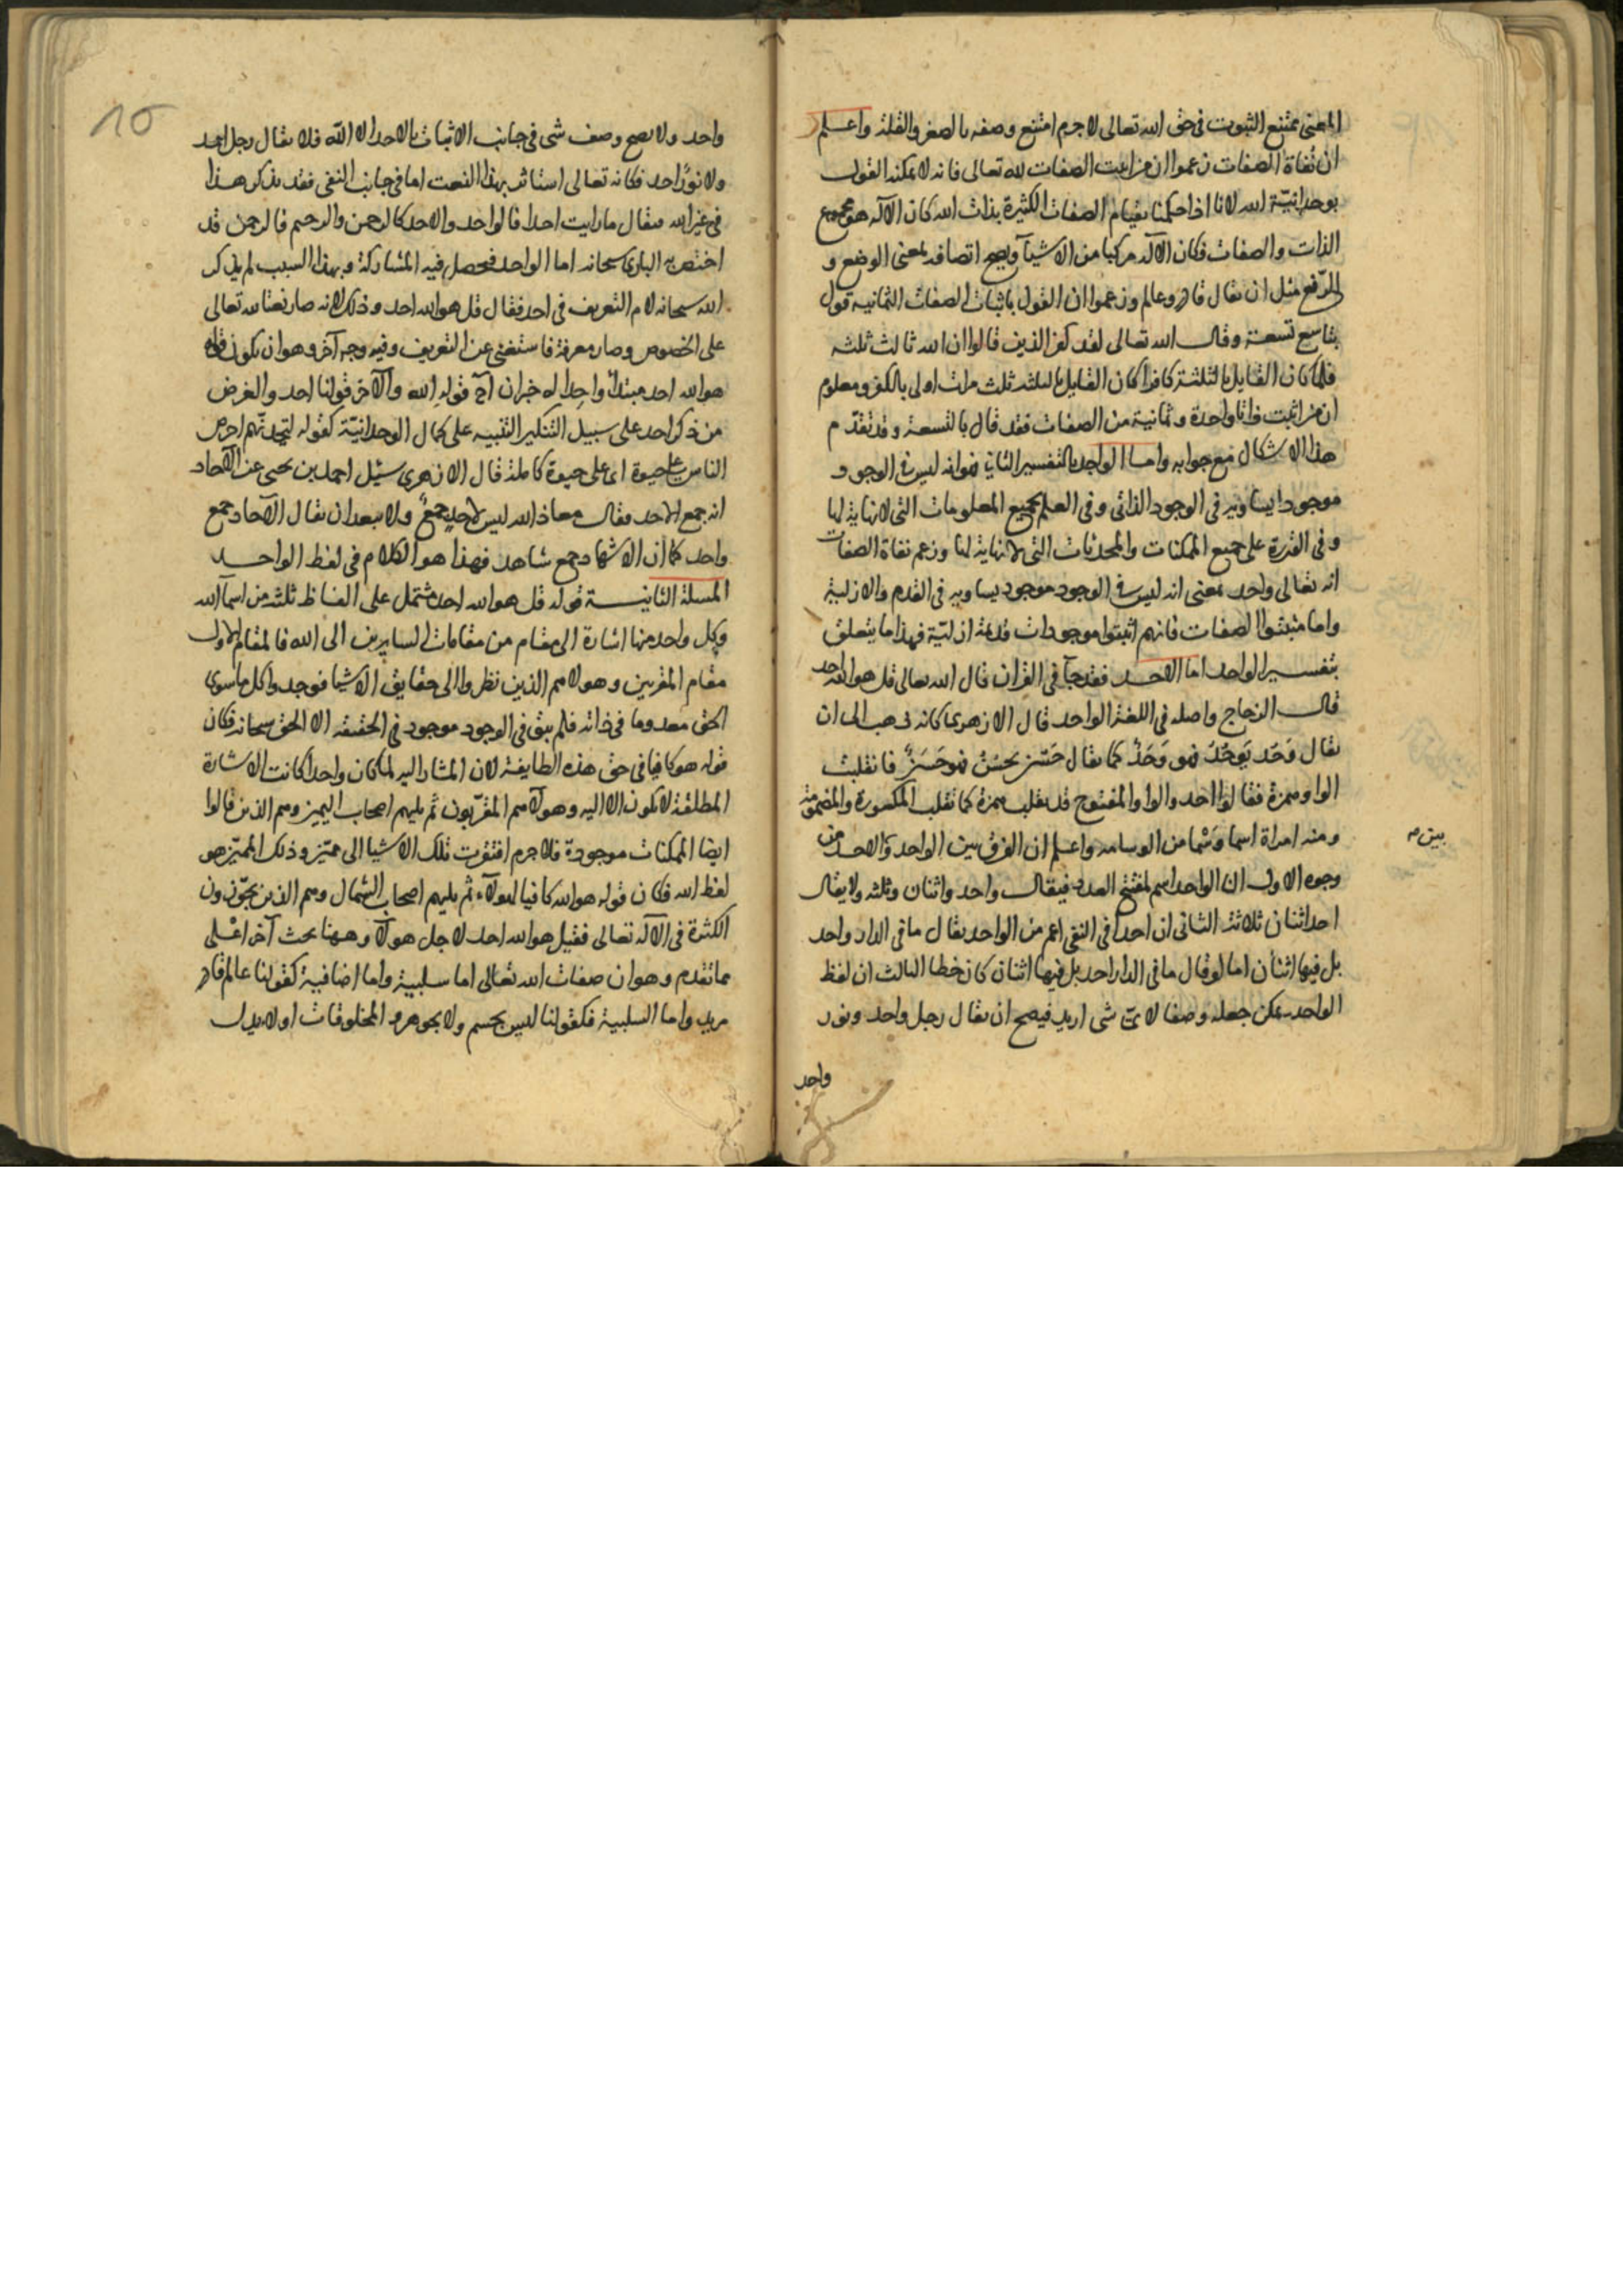 المعنى ممتنع الثبوت فى حق الله تعالى لا جرم امتنع وصفه بالصغر والقلة واعلم
ان نفاة الصفات زعموا ان من اثبت الصفات لله تعالى فانه لا يمكنه القول
بوحدانيّة الله لانا اذا حكمنا بقيام الصفات الكثيرة بذات الله كان الآله هو مجموع
الذات والصفات فكان الآله مركبا من الاشيآ ويصح اتصافه لمعنى الوضع و
الرفع مثل ان يقال قادر وعالم وزعموا ان القول باثبات الصفات الثمانيه قول
بتاسع تسعة وقال الله تعالى لقد كفر الذين قالوا ان الله ثالث ثلثه
فلما كان القايل بالثلثة كافرا كان القايل بالثلثه ثلث مرات اولى بالكفر ومعلوم
ان من اثبت ذاتا واحدة وثمانية من الصفات فقد قال بالتسعة وقد تقدّم
هذا الاشكال مع جوابه واما الواحد بالتفسير الثانى فهو انه ليس فى الوجود
موجود يساويه فى الوجود الذاتى وفى العلم بجميع المعلومات التى لا نهاية لها
وفى القدرة على جميع الممكنات والمحدثات التى لا نهاية لها وزعم نفاة الصفات
انه تعالى واحد بمعنى انه ليس فى الوجود موجود يساويه فى القدم والازلية
واما مثبتوا الصفات فانهم اثبتوا موجودات قديمة ازليّة فهذا ما يتعلق
بتفسير الواحد اما الاحد فقد جآ فى القران قال الله تعالى قل هو الله احد
قال الزجاج واصله فى اللغة الواحد قال الازهرى كانه ذهب الى ان
يقال وَحَد يَوحُدُ فهو وَحَدٌ كما يقال حَسُن يَحسُنُ فهو حَسَنٌ فانقلبت
الواو همزة فقالوا احد والواو المفتوح قد يقلب همزة كما تقلب المكسورة والمضمومة
ومنه امراة اسما وَسْما من الوسامه واعلم ان الفرق بين الواحد والاحد من
بين م
وجوه الاول ان الواحد اسم لمفتتح العدد فيقال واحد واثنان وثلثه ولا يقال
احد اثنان ثلاثة الثانى ان احدا فى النفى اعم من الواحد يقال ما فى الدار واحد
بل فيها اثنان اما لو قال ما فى الدار احد بل فيها اثنان كان خطا الثالث ان لفظ
الواحد يمكن جعله وصفا لاىّ شى اريد فيصح ان يقال رجل واحد ونور
واحد
واحد ولا يصح وصف شى فى جانب الاثبات بالاحد الا الله فلا يقال رجل احد
ولا نورٌ احد فكانه تعالى استاثر بهذا النعت اما فى جانب النفى فقد يذكر هذا
فى غير الله فيقال ما رايت احدا فالواحد والاحد كالرحمن والرحيم فالرحمن قد
اختص به البارى سبحانه اما الواحد فحصل فيه المشاركة وبهذا السبب لم يذكر
الله سبحانه لام التعريف فى احد فقال قل هو الله احد وذلك لانه صار نعتا لله تعالى
على الخصوص وصار معرفة فاستغنى عن التعريف وفيه وجه آخر وهو ان يكون قوله
هو الله احد مبتدأ واحدا له خبران احدهما قوله الله والآخر قولنا احد والغرض
من ذكر احد على سبيل التنكير التنبيه على كمال الوحدانيّة كقوله لتجدنّهم احرص
الناس على حيوة اى على حيوة كاملة قال الازهرى سئيل احمد بن يحيى عن الآحاد
انه جمع الاحد فقال معاذ الله ليس لاحد جمعٌ ولا يبعد ان يقال الآحاد جمع
واحد كما ان الاشهاد جمع شاهد فهذا هو الكلام فى لفظ الواحد
المسلة الثانية قوله قل هو الله احد مشتمل على الفاظ ثلثه من اسمآ الله
وكل واحد منها اشارة الى مقام من مقامات السايرين الى الله فالمقام الاول
مقام المقربين وهولا هم الذين نظروا الى حقايق الاشيا فوجدوا كل ما سوى
الحق معدوما فى ذاته فلم يبق فى الوجود موجود فى الحقيقه الا الحق سبحانه فكان
قوله هو كافيا فى حق هذه الطايفة لان المشار اليه لما كان واحدا كانت الاشارة
المطلقة لا يكون الا اليه وهولآ هم المقرّبون ثم يليهم اصحاب اليمين وهم الذين قالوا
ايضا الممكنات موجودة فلا جرم افتقرت تلك الاشيا الى مميّز وذلك المميّز هو
لفظ الله فكان قوله هو الله كافيا لهولآء ثم يليهم اصحاب الشمال وهم الذين يجوّزون
الكثرة فى الآله تعالى فقيل هو الله احد لاجل هولآ وههنا بحث آخر اعلى
مما تقدم وهو ان صفات الله تعالى اما سلبية واما اضافية كقولنا عالم قادر
مريد واما السلبية فكقولنا ليس بجسم ولا بجوهر والمخلوقات اولا يدل